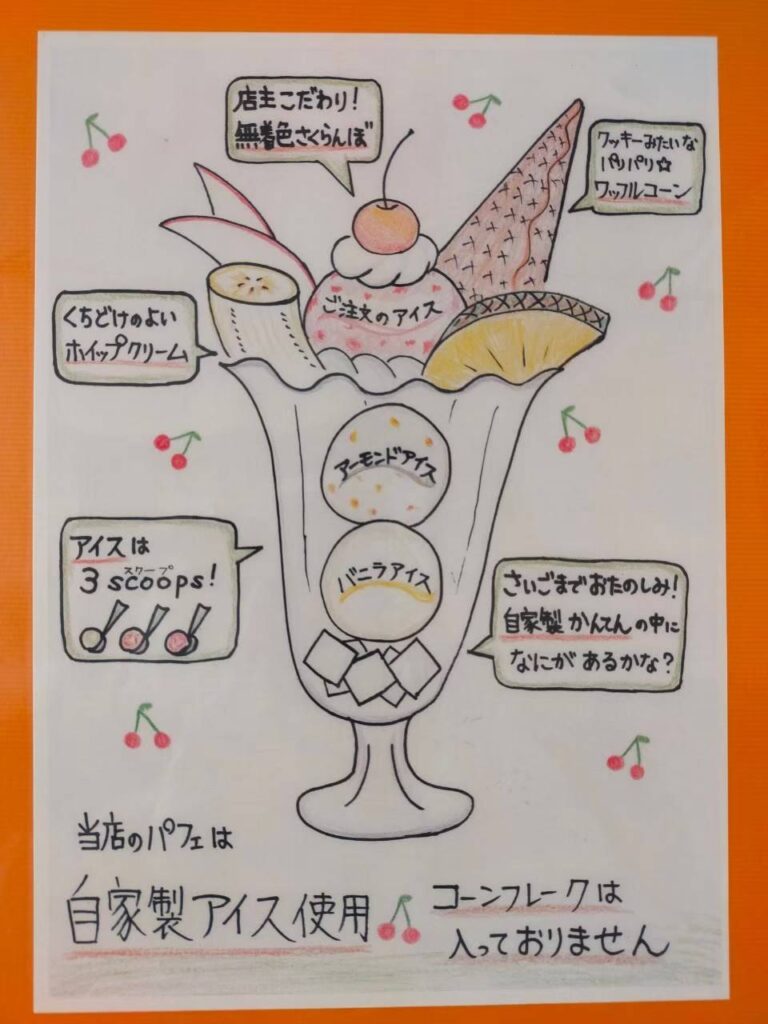 店主こだわり!
無着色さくらんぼ
クッキーみたいな
パリパリ☆
ワッフルコーン
くちどけのよい
ホイップクリーム
ご注文のアイス
アーモンドアイス
アイスは
スクープ
3 scoops!
バニラアイス
さいごまでおたのしみ!
自家製かんてんの中に
なにがあるかな?
当店のパフェは
自家製アイス使用
コーンフレークは
入っておりません